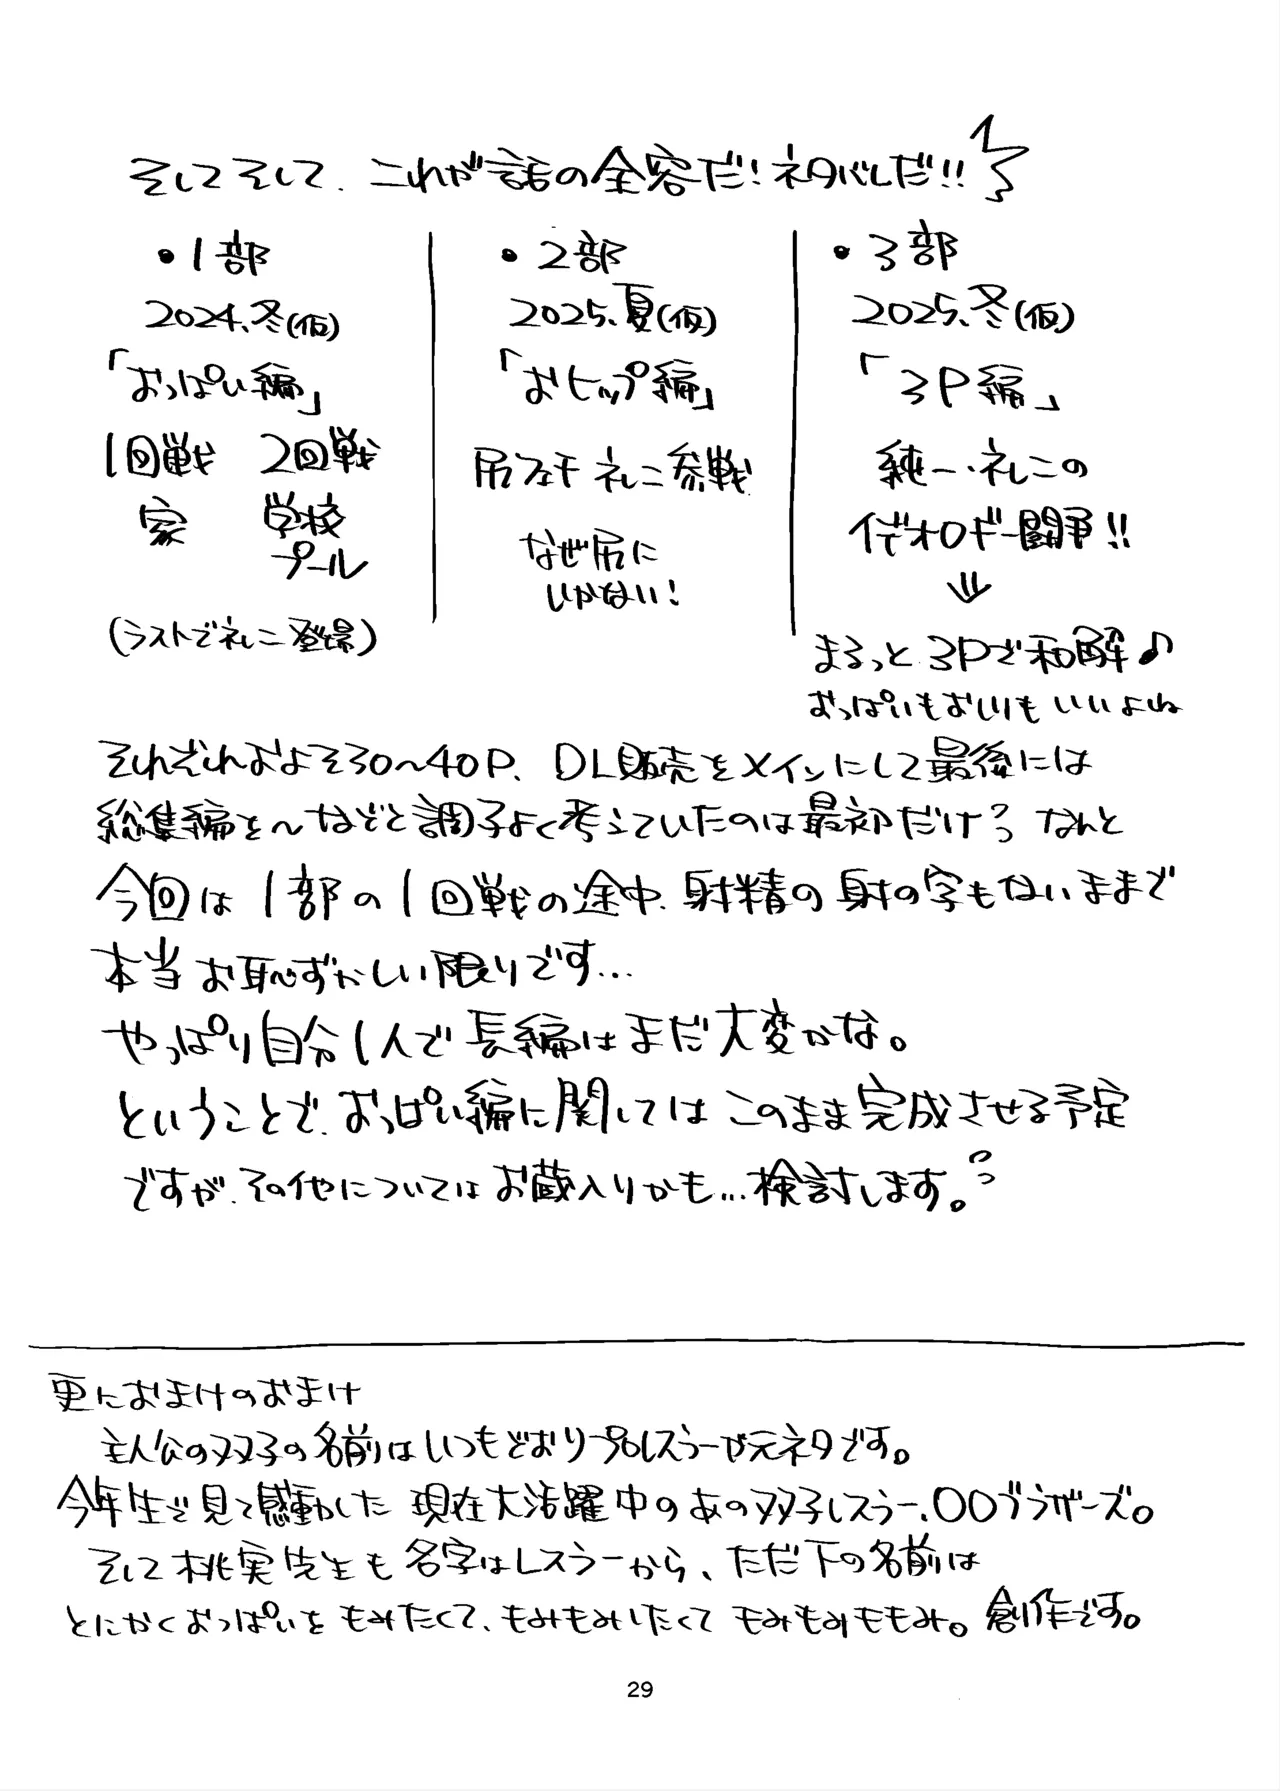 そしてそして、これが話の全容だ!ネタバレだ!!
・1部
2024.冬(仮)
「おっぱい編」
1回戦 2回戦
家 学校
プール
(ラストでネレニ登場)
・2部
2025.夏(仮)
「おヒップ編」
尻フェチ ネレニ参戦
なぜ尻に
いかない!
・3部
2025.冬(仮)
「3P編」
純一・ネレニの
イデオロギー闘争!!
まるっと3Pで和解♪
おっぱいもおしりもいいよね
それぞれおよそ30〜40P、DL販売をメインにして最後には
総集編を〜などと調子よく考えていたのは最初だけ?なんと
今回は1部の1回戦の途中、射精の射の字もないままで
本当お恥ずかしい限りです…
やっぱり自分1人で長編はまだ大変かな。
ということで、おっぱい編に関してはこのまま完成させる予定
ですが、その他についてはお蔵入りかも…検討します。
更におまけのおまけ
主人公の双子の名前はいつもどおりプロレスラーが元ネタです。
今年生で見て感動した現在大活躍中のあの双子レスラー、〇〇ブラザーズ。
そして桃実先生も名字はレスラーから、ただ下の名前は
とにかくおっぱいをもみたくて、もみもみいたくてもみもみももみ。創作です。
29